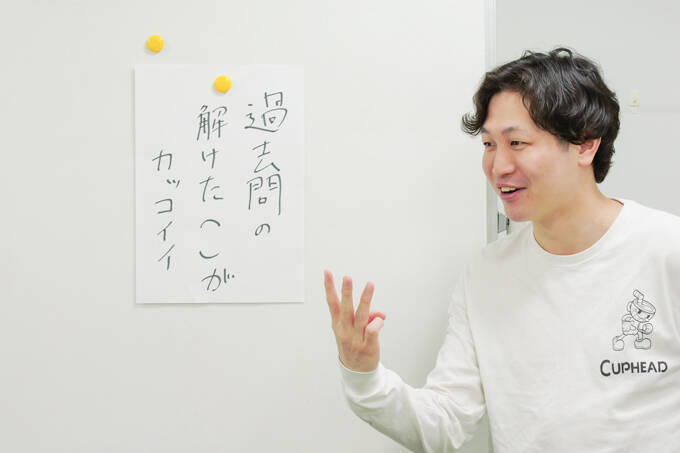 過去問の
解けた( )が
カッコイイ
CUPHEAD